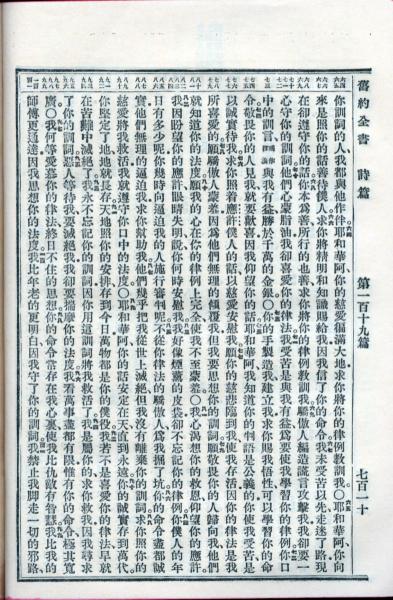 舊約全書　詩篇　第一百十九篇　七百一十
你訓詞的人我都與他作伴耶和華阿你的慈愛徧滿大地求你將你的律例教訓我○耶和華阿你向
來是照你的話善待僕人求你將精明和知識賜給我因我信了你的命令我未受苦以先走迷了路現
在卻遵守你的話你本爲善所行的也善求你將你的律例教訓我驕傲人編造謊言攻擊我我卻要一
心守你的訓詞他們心蒙脂油我卻喜愛你的律法我受苦是與我有益爲要使我學習你的律例你口
中的訓言與我有益勝於千萬的金銀○你的手製造我建立我求你賜我悟性可以學習你的命
令敬畏你的人見我就要歡喜因我仰望你的話耶和華我知道你的判語是公義的你使我受苦是
以誠實待我求你照着應許僕人的話以慈愛安慰我願你的慈悲臨到我使我存活因你的律法是我
所喜愛的願驕傲人蒙羞因爲他們無理的傾覆我但我要思想你的訓詞願敬畏你的人歸向我他們
就知道你的法度願我的心在你的律例上完全使我不至蒙羞○我心渴想你的救恩仰望你的應許
我因盼望你的應許眼睛失明說你何時安慰我我好像煙薰的皮袋卻不忘記你的律例你僕人的年
日有多少呢你幾時向逼迫我的人施行審判呢不從你律法的驕傲人爲我掘了坑你的命令盡都誠
實他們無理的逼迫我求你幫助我他們幾乎把我從世上滅絕但我沒有離棄你的訓詞求你照你的
慈愛將我救活我就遵守你口中的法度○耶和華阿你的話安定在天直到永遠你的誠實存到萬代
你堅定了地地就長存天地照你的安排存到今日萬物都是你的僕役我若不是喜愛你的律法早就
在苦難中滅絕了我永不忘記你的訓詞因你用這訓詞將我救活了我是屬你的求你救我因我尋求
了你的訓詞惡人等待我要滅絕我我卻要揣摩你的法度我看萬事盡都有限惟有你的命令極其寬
廣○我何等愛慕你的律法終日不住的思想你的命令常存在我心裏使我比仇敵有智慧我比我的
師傅更通達因我思想你的法度我比年老的更明白因我守了你的訓詞我禁止我腳走一切的邪路